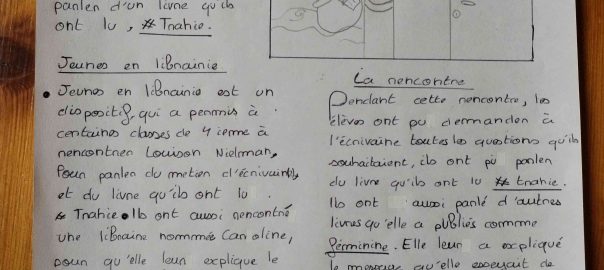 parler d'un livre qu'ils
ont lu, # Trahie.
Jeunes en librairie
• Jeunes en librairie est un
dispositif, qui a permis à
certaines classes de 4 ieme à
rencontrer Louison Nielman,
Pour parler du metier d'écrivain(e),
et du livre qu'ils ont lu.
# Trahie. Ils ont aussi rencontré
une libraire nommée Caroline,
pour qu'elle leur explique le
La rencontre
Pendant cette rencontre, les
élèves ont pu demander à
l'écrivaine toutes les questions qu'ils
souhaitaient, ils ont pû parler
du livre qu'ils ont lu # trahie.
Ils ont aussi parlé d'autres
livres qu'elle a publiés comme
Féminine. Elle leur a expliqué
le message qu'elle essayait de